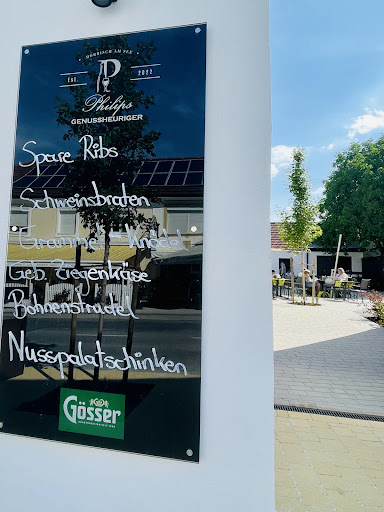 MÖRBISCH AM SEE
Est. 2022
P
Philips
GENUSSHEURIGER
Spare Ribs
Schweinsbraten
Grammel-Knödel
Geb. Ziegenkäse
Bohnenstrudel
Nusspalatschinken
Gösser